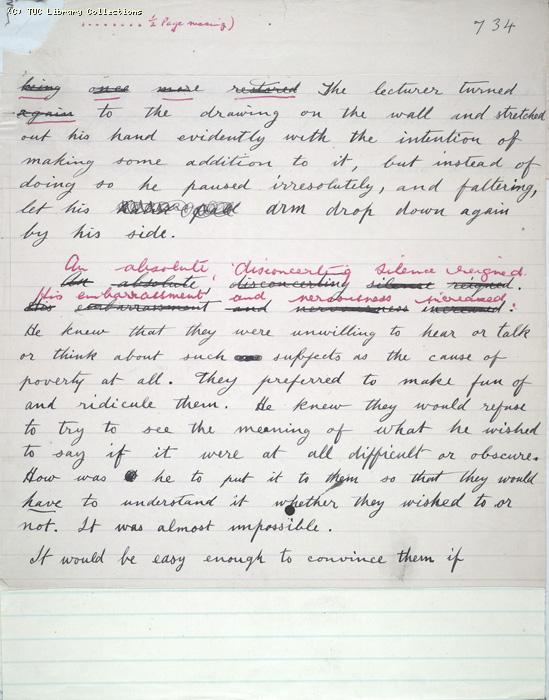 (C) TUC Library Collections
........ ½ Page missing)
734
king once more restored The lecturer turned
again to the drawing on the wall and stretched
out his hand evidently with the intention of
making some addition to it, but instead of
doing so he paused irresolutely, and faltering,
let his arm drop down again
by his side.
An absolute, disconcerting silence reigned.
An absolute, disconcerting silence reigned.
His embarrassment and nervousness increased.
His embarrassment and nervousness increased.
He knew that they were unwilling to hear or talk
or think about such subjects as the cause of
poverty at all. They preferred to make fun of
and ridicule them. He knew they would refuse
to try to see the meaning of what he wished
to say if it were at all difficult or obscure.
How was he to put it to them so that they would
have to understand it whether they wished to or
not. It was almost impossible.
It would be easy enough to convince them if